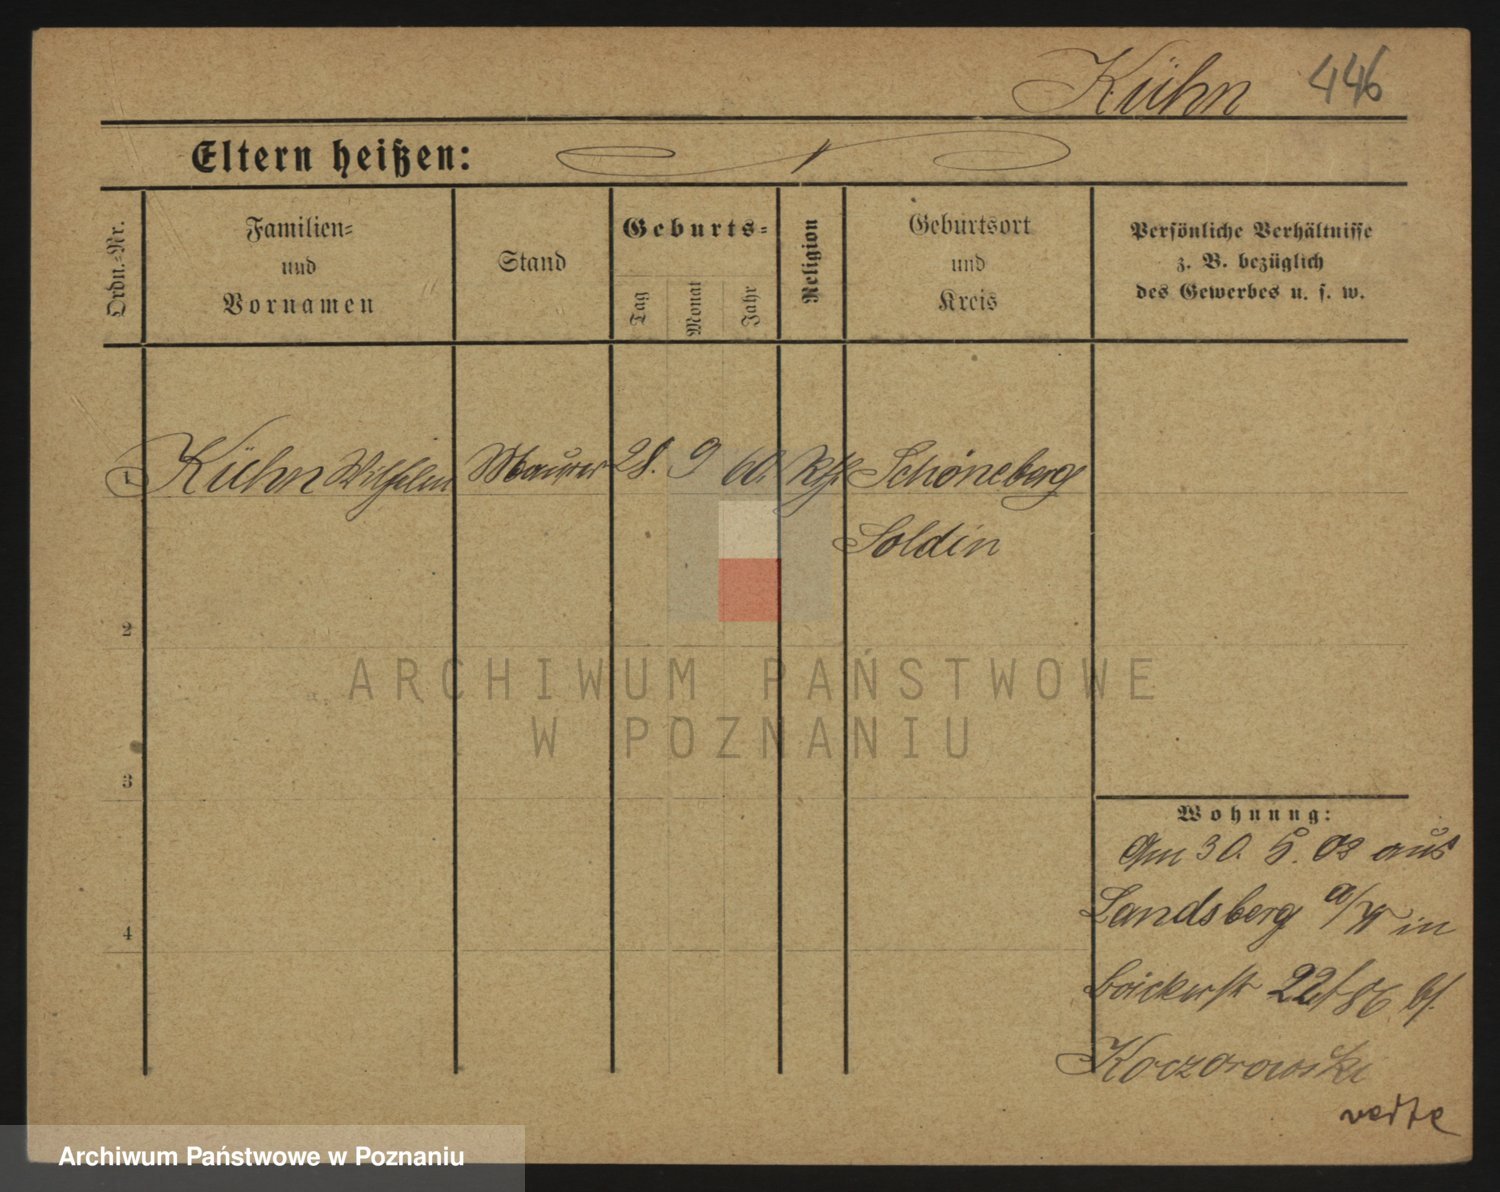 Kühn 446
Eltern heißen:
Ordn.-Nr.
Familien-
und
Vornamen
Stand
Geburts-
Tag
Monat
Jahr
Religion
Geburtsort
und
Kreis
Persönliche Verhältnisse
z. B. bezüglich
des Gewerbes u. s. w.
1 Kühn Wilhelm Maurer 28. 9 60. Kth. Schöneberg
Soldin
2
3
4
Wohnung:
Am 30. 5. 03 aus
Landsberg a/W in
22/86 bf.
Koczorowski
verte
ARCHIWUM PAŃSTWOWE
W POZNANIU
Archiwum Państwowe w Poznaniu